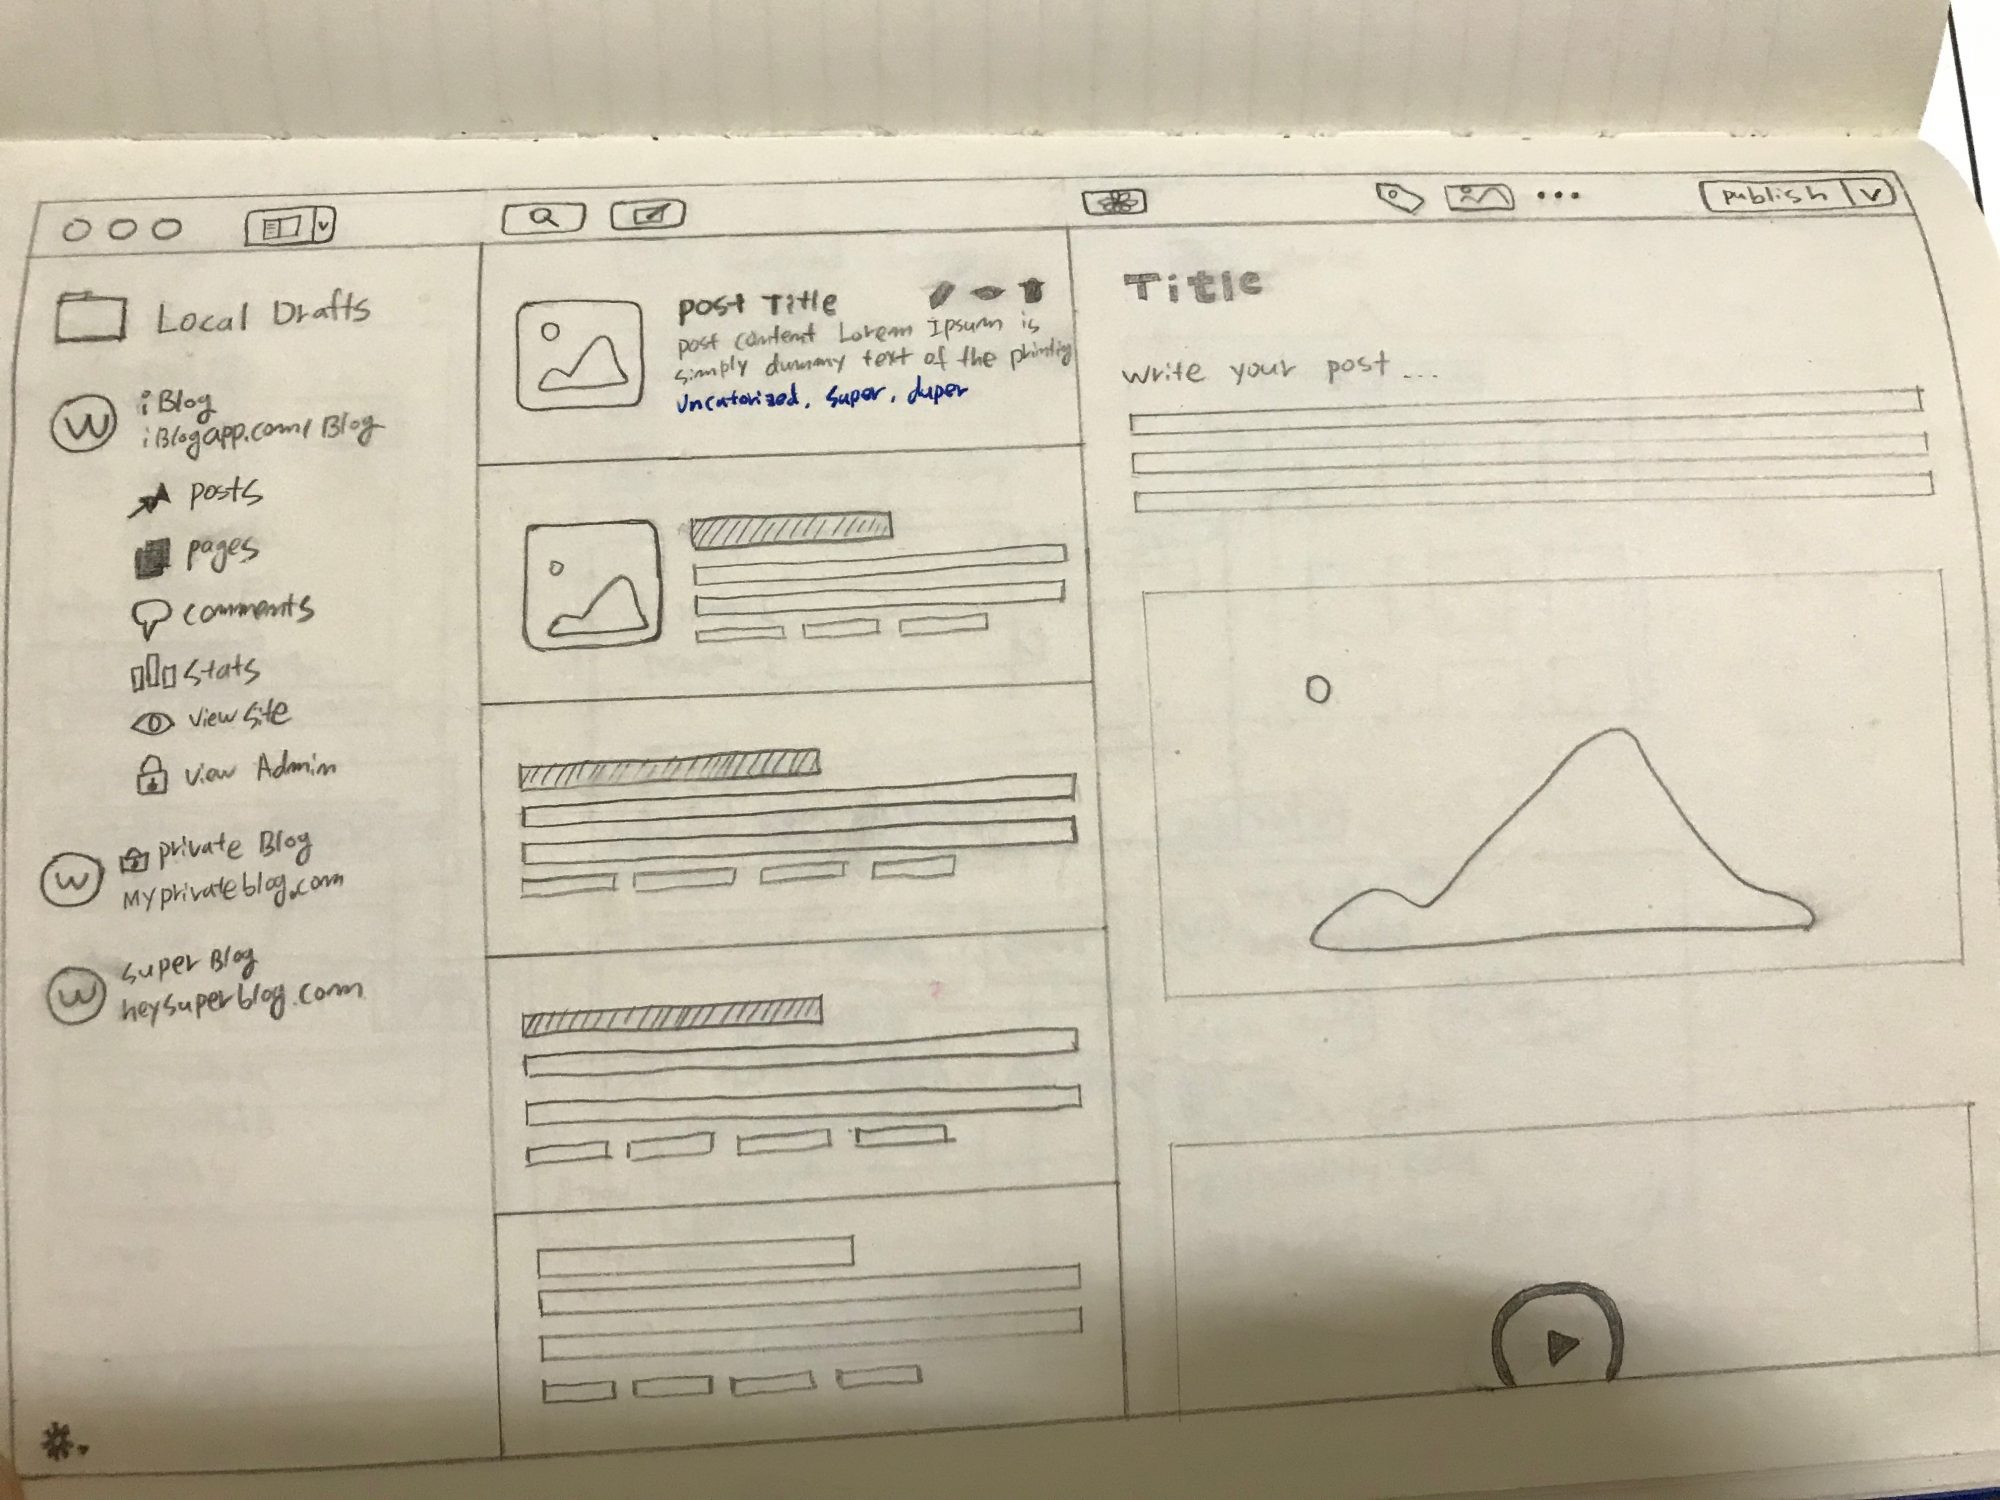 publish
Local Drafts
iBlog
iBlogapp.com/Blog
posts
pages
comments
stats
view site
view Admin
private Blog
Myprivateblog.com
super Blog
heysuperblog.com
W
W
W
post Title
post content Lorem Ipsum is
simply dummy text of the printing
Uncatorized, super, duper
Title
write your post ...